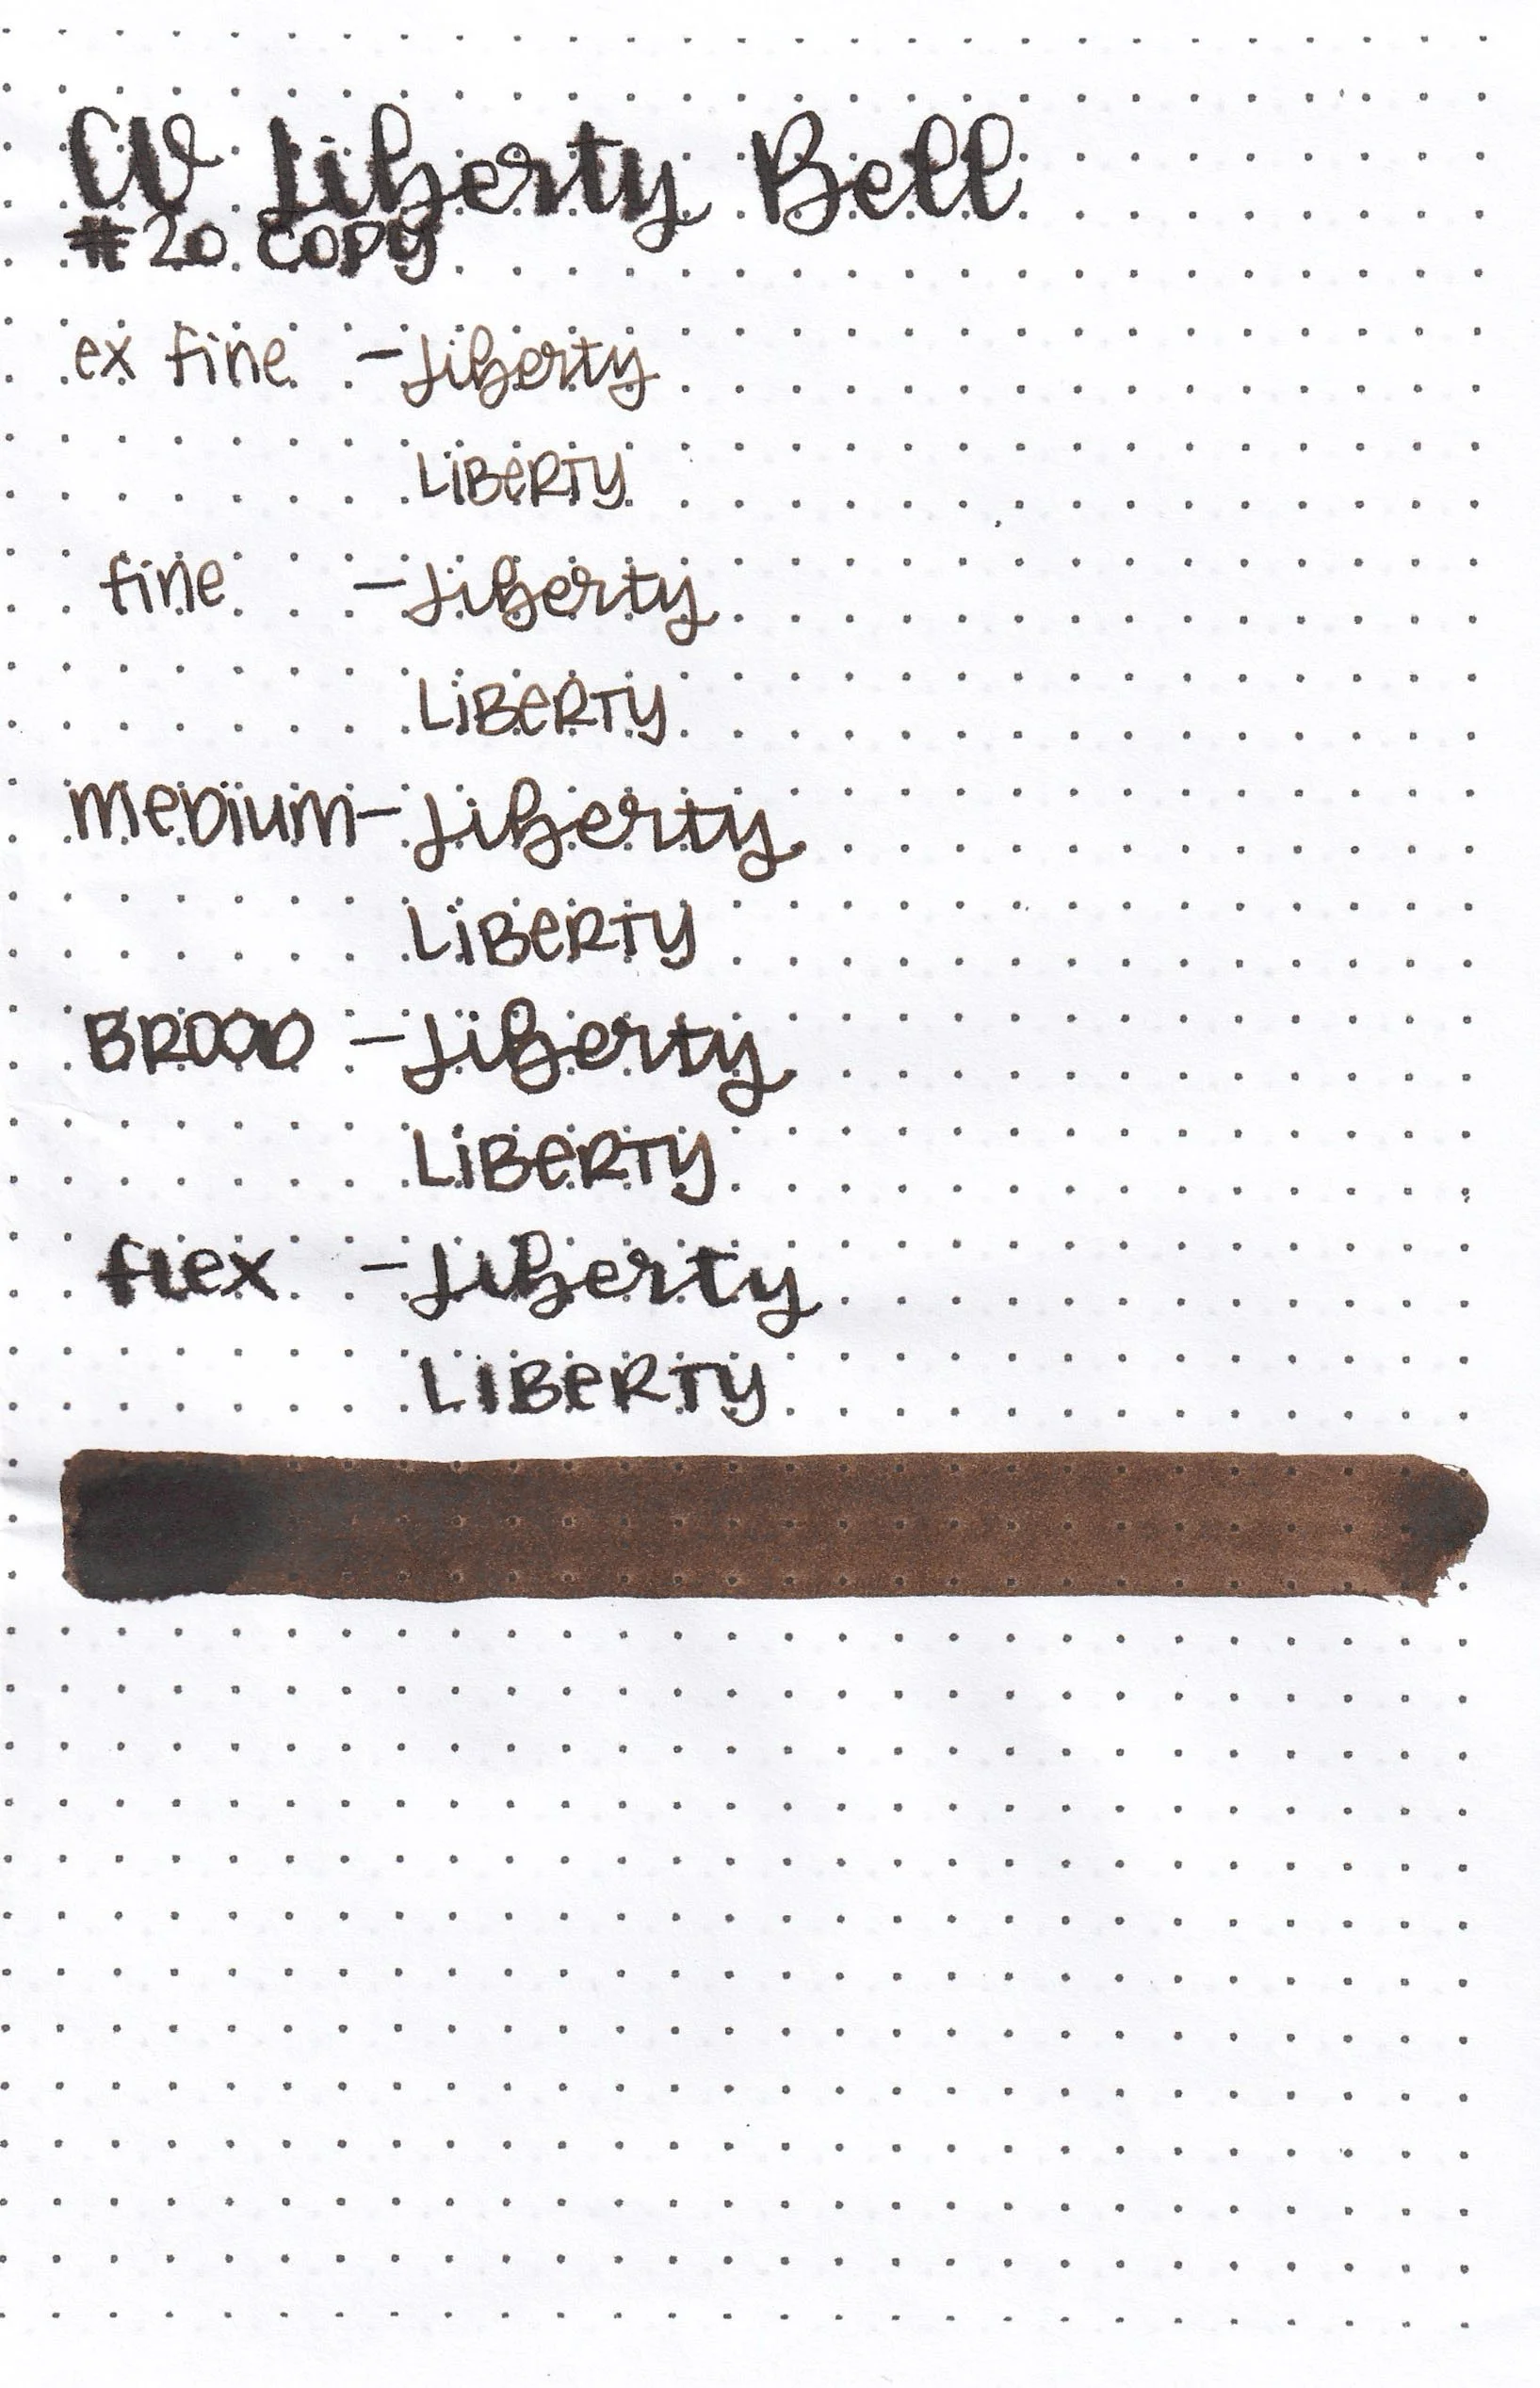 CV Liberty Bell
#20 COPY
ex fine - Liberty
LiBeRTY
fine - Liberty
LiBeRTY
meDium - Liberty
LiBeRTY
BROAD - Liberty
LiBeRTY
flex - Liberty
LiBeRTY